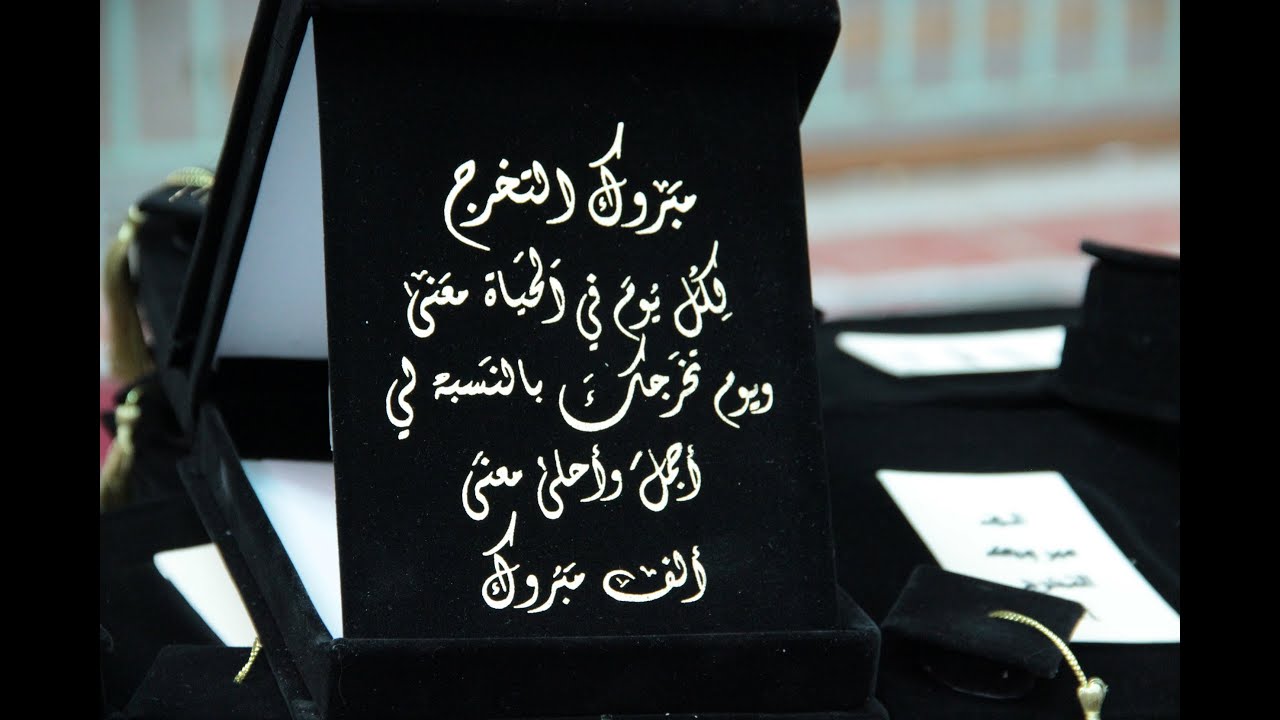 مبَرَوك التخرج
لِكُل يُومَ في اَلحيَاة معَنىٰ
ويوم تخَرَجكَ بالنسَبه لي
أجملَ وأحلىٰ معنىَ
ألف مبَروك